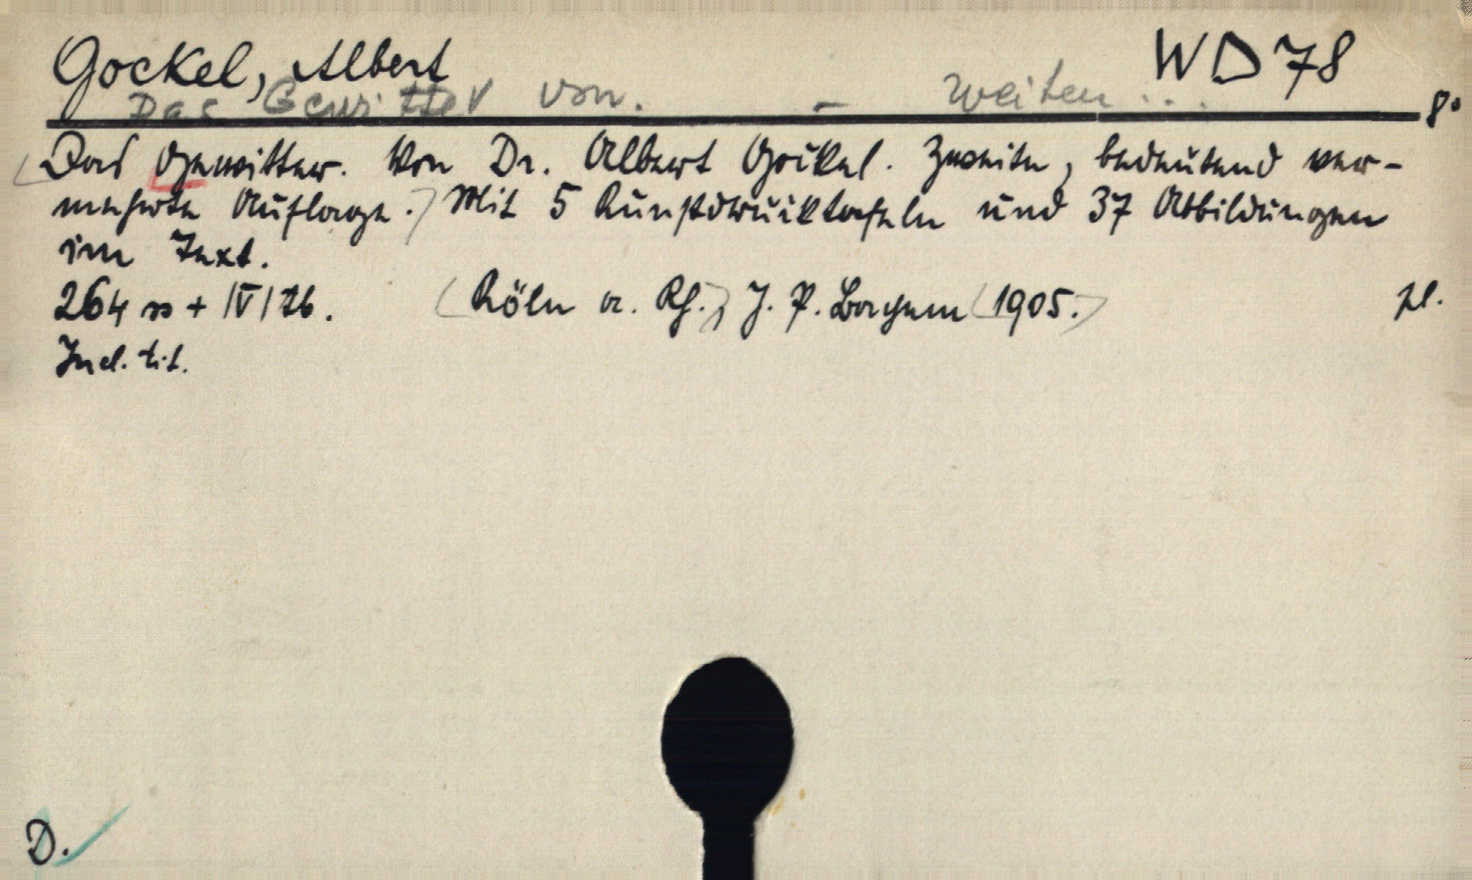 Gockel, Albert WD 78
Das Gewitter von. – weiten...
8°
(Das Gewitter. Von Dr. Albert Gockel. Zweite, bedeutend ver-
mehrte Auflage.) Mit 5 Kunstdrucktafeln und 37 Abbildungen
im Text.
264 ss + IV Tb. (Köln a. Rh.) J. P. Bachem (1905.) pl.
Incl. tit.
D.